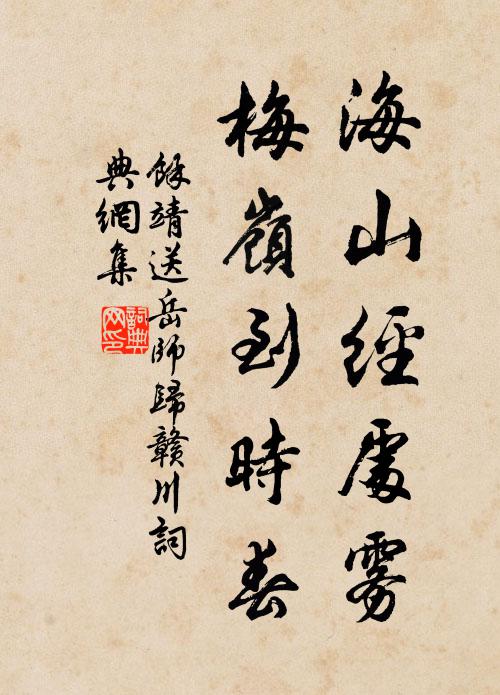 海山經處雾
梅嶺到時春
餘靖送岳師歸贛川詞
典網集
詞典
网印